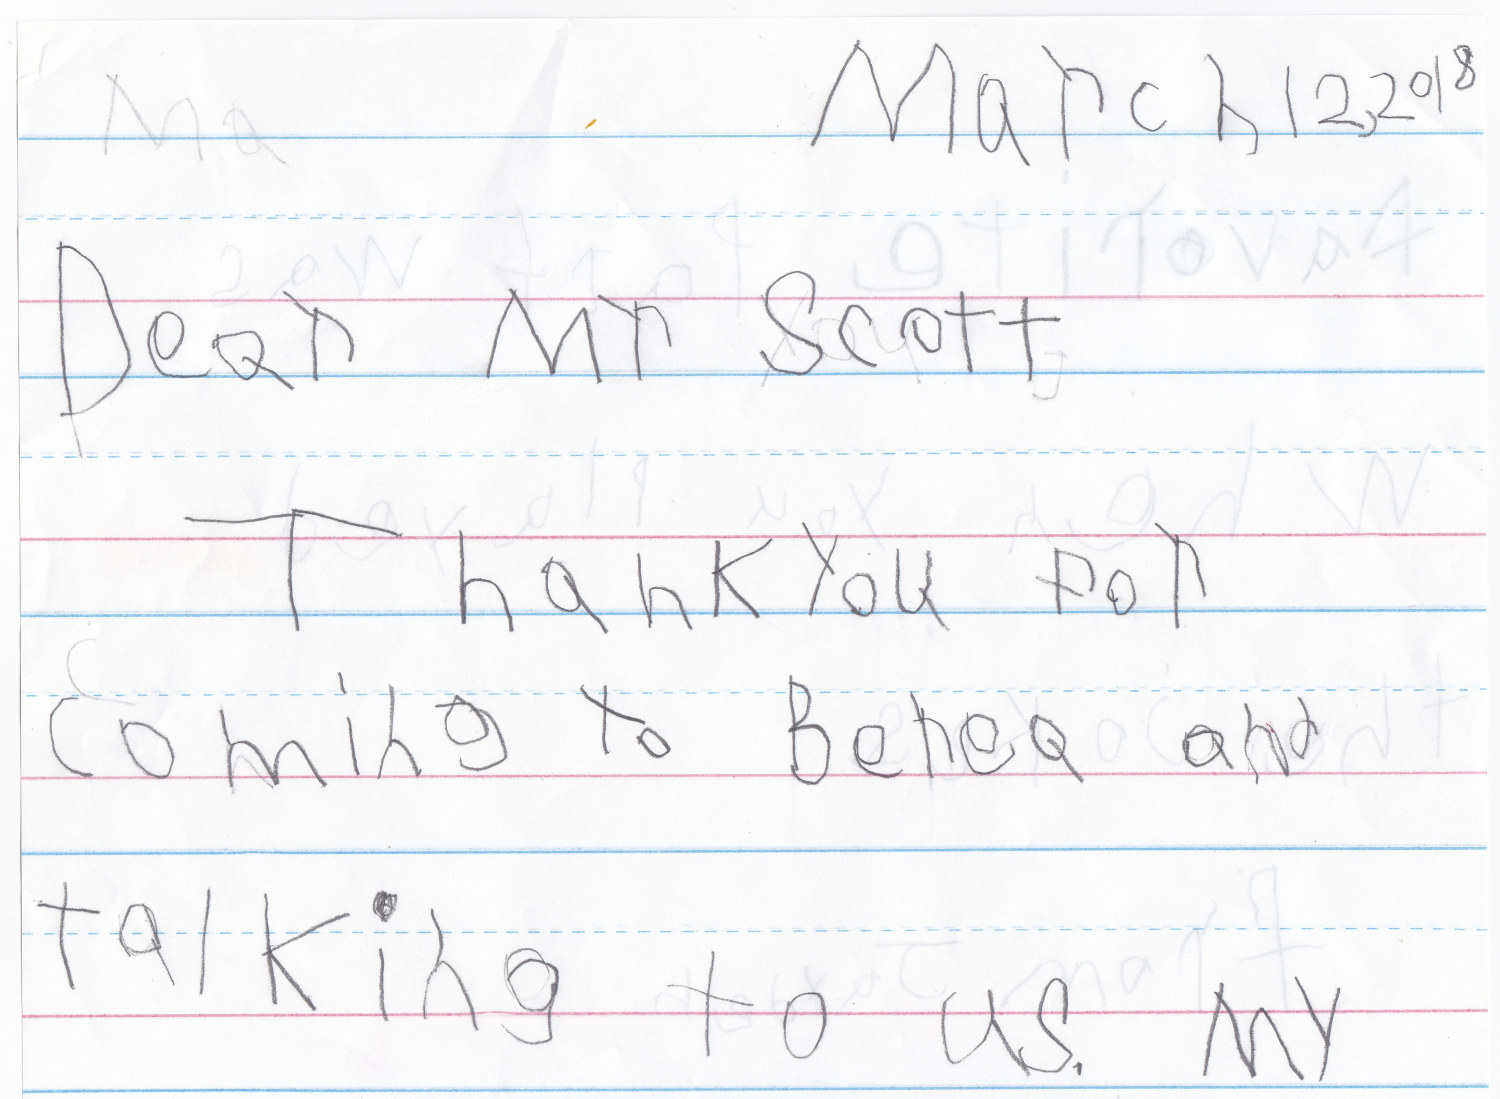 March 12, 2018
Dear Mr Scott
Thank You For
coming to Berea and
talking to us. My